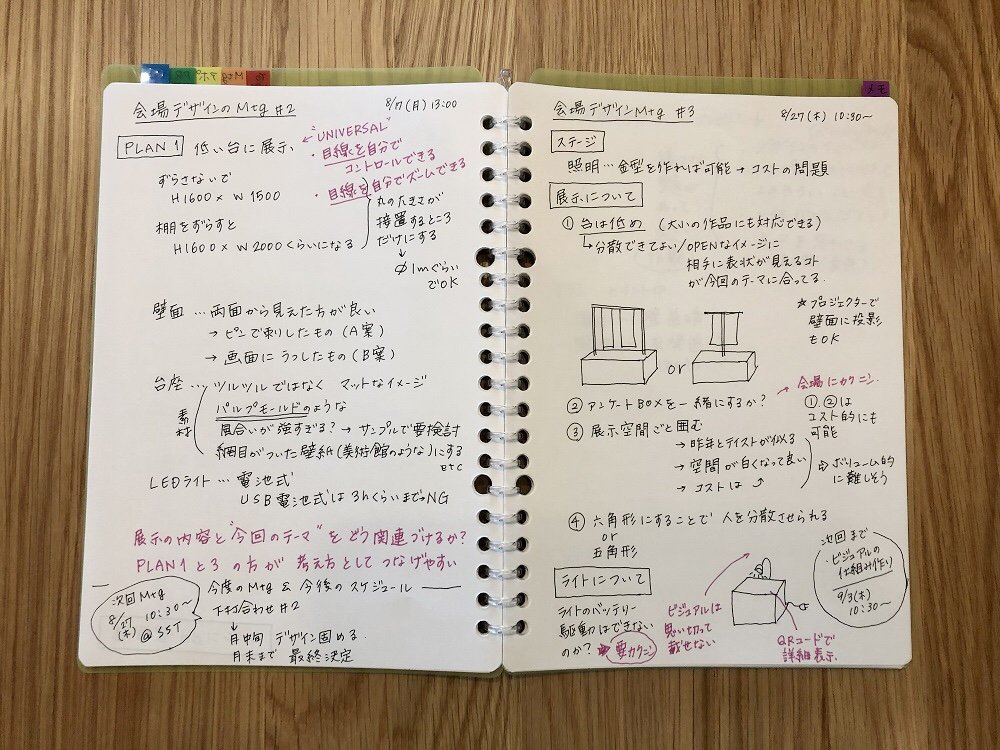 Mtg
メモ
会場デザインのMtg #2
8/7(月) 13:00
PLAN 1 低い台に展示、
"UNIVERSAL"
・目線を自分で
コントロールできる
・目線を自分でズームできる
ずらさないで
H1600 × W1500
棚目をずらすと
H1600 × W2000くらいになる
丸の大きさが
接置するところ
だけにする
↓
∅1mぐらい
でOK
壁面 … 両面から見えた方が良い
→ ピンで刺したもの (A案)
→ 画面にうつしたもの (B案)
台座 … ツルツルではなく マットなイメージ
素材
パルプモールドのような
風合いが強すぎる? → サンプルで要検討
網目がついた壁紙(美術館のような)にする
etc
LEDライト … 電池式
USB電池式は3hくらいまで→NG
展示の内容と"今回のテーマ"をどう関連づけるか?
PLAN1と3の方が 考え方として つなげやすい
今度のMtg & 今後のスケジュール
下打合わせ #2
↓
月中旬 デザイン固める.
月末まで 最終決定
次回Mtg
8/27(木) 10:30~
@SST
会場デザインMtg #3
8/27(木) 10:30~
ステージ
照明 … 金型を作れば可能 → コストの問題
展示について
① 台は低め (大いの作品にも対応できる)
↳ 分散できてよい/OPENなイメージに
相手に表状が見えるコト
が今回のテーマに合ってる.
★プロジェクターで
壁面に投影
もOK
or
② アンケートBOXを一緒にするか?
→ 会場にカクニン
①、②は
コスト的にも
可能
③ 展示空間ごと囲む
→ 昨年とテイストが似る
→ 空間が白くなって良い
→ コストは
⇨ ボリューム的
に難しそう
④ 六角形にすることで 人を分散させられる
or
五角形
次回まで
・ビジュアルの
仕組み作り
9/3(木)
10:30~
ライトについて
ライトのバッテリー
駆動はできない
のか? ★要カクニン
ビジュアルは
思い切って
載せない
QRコードで
詳細表示.